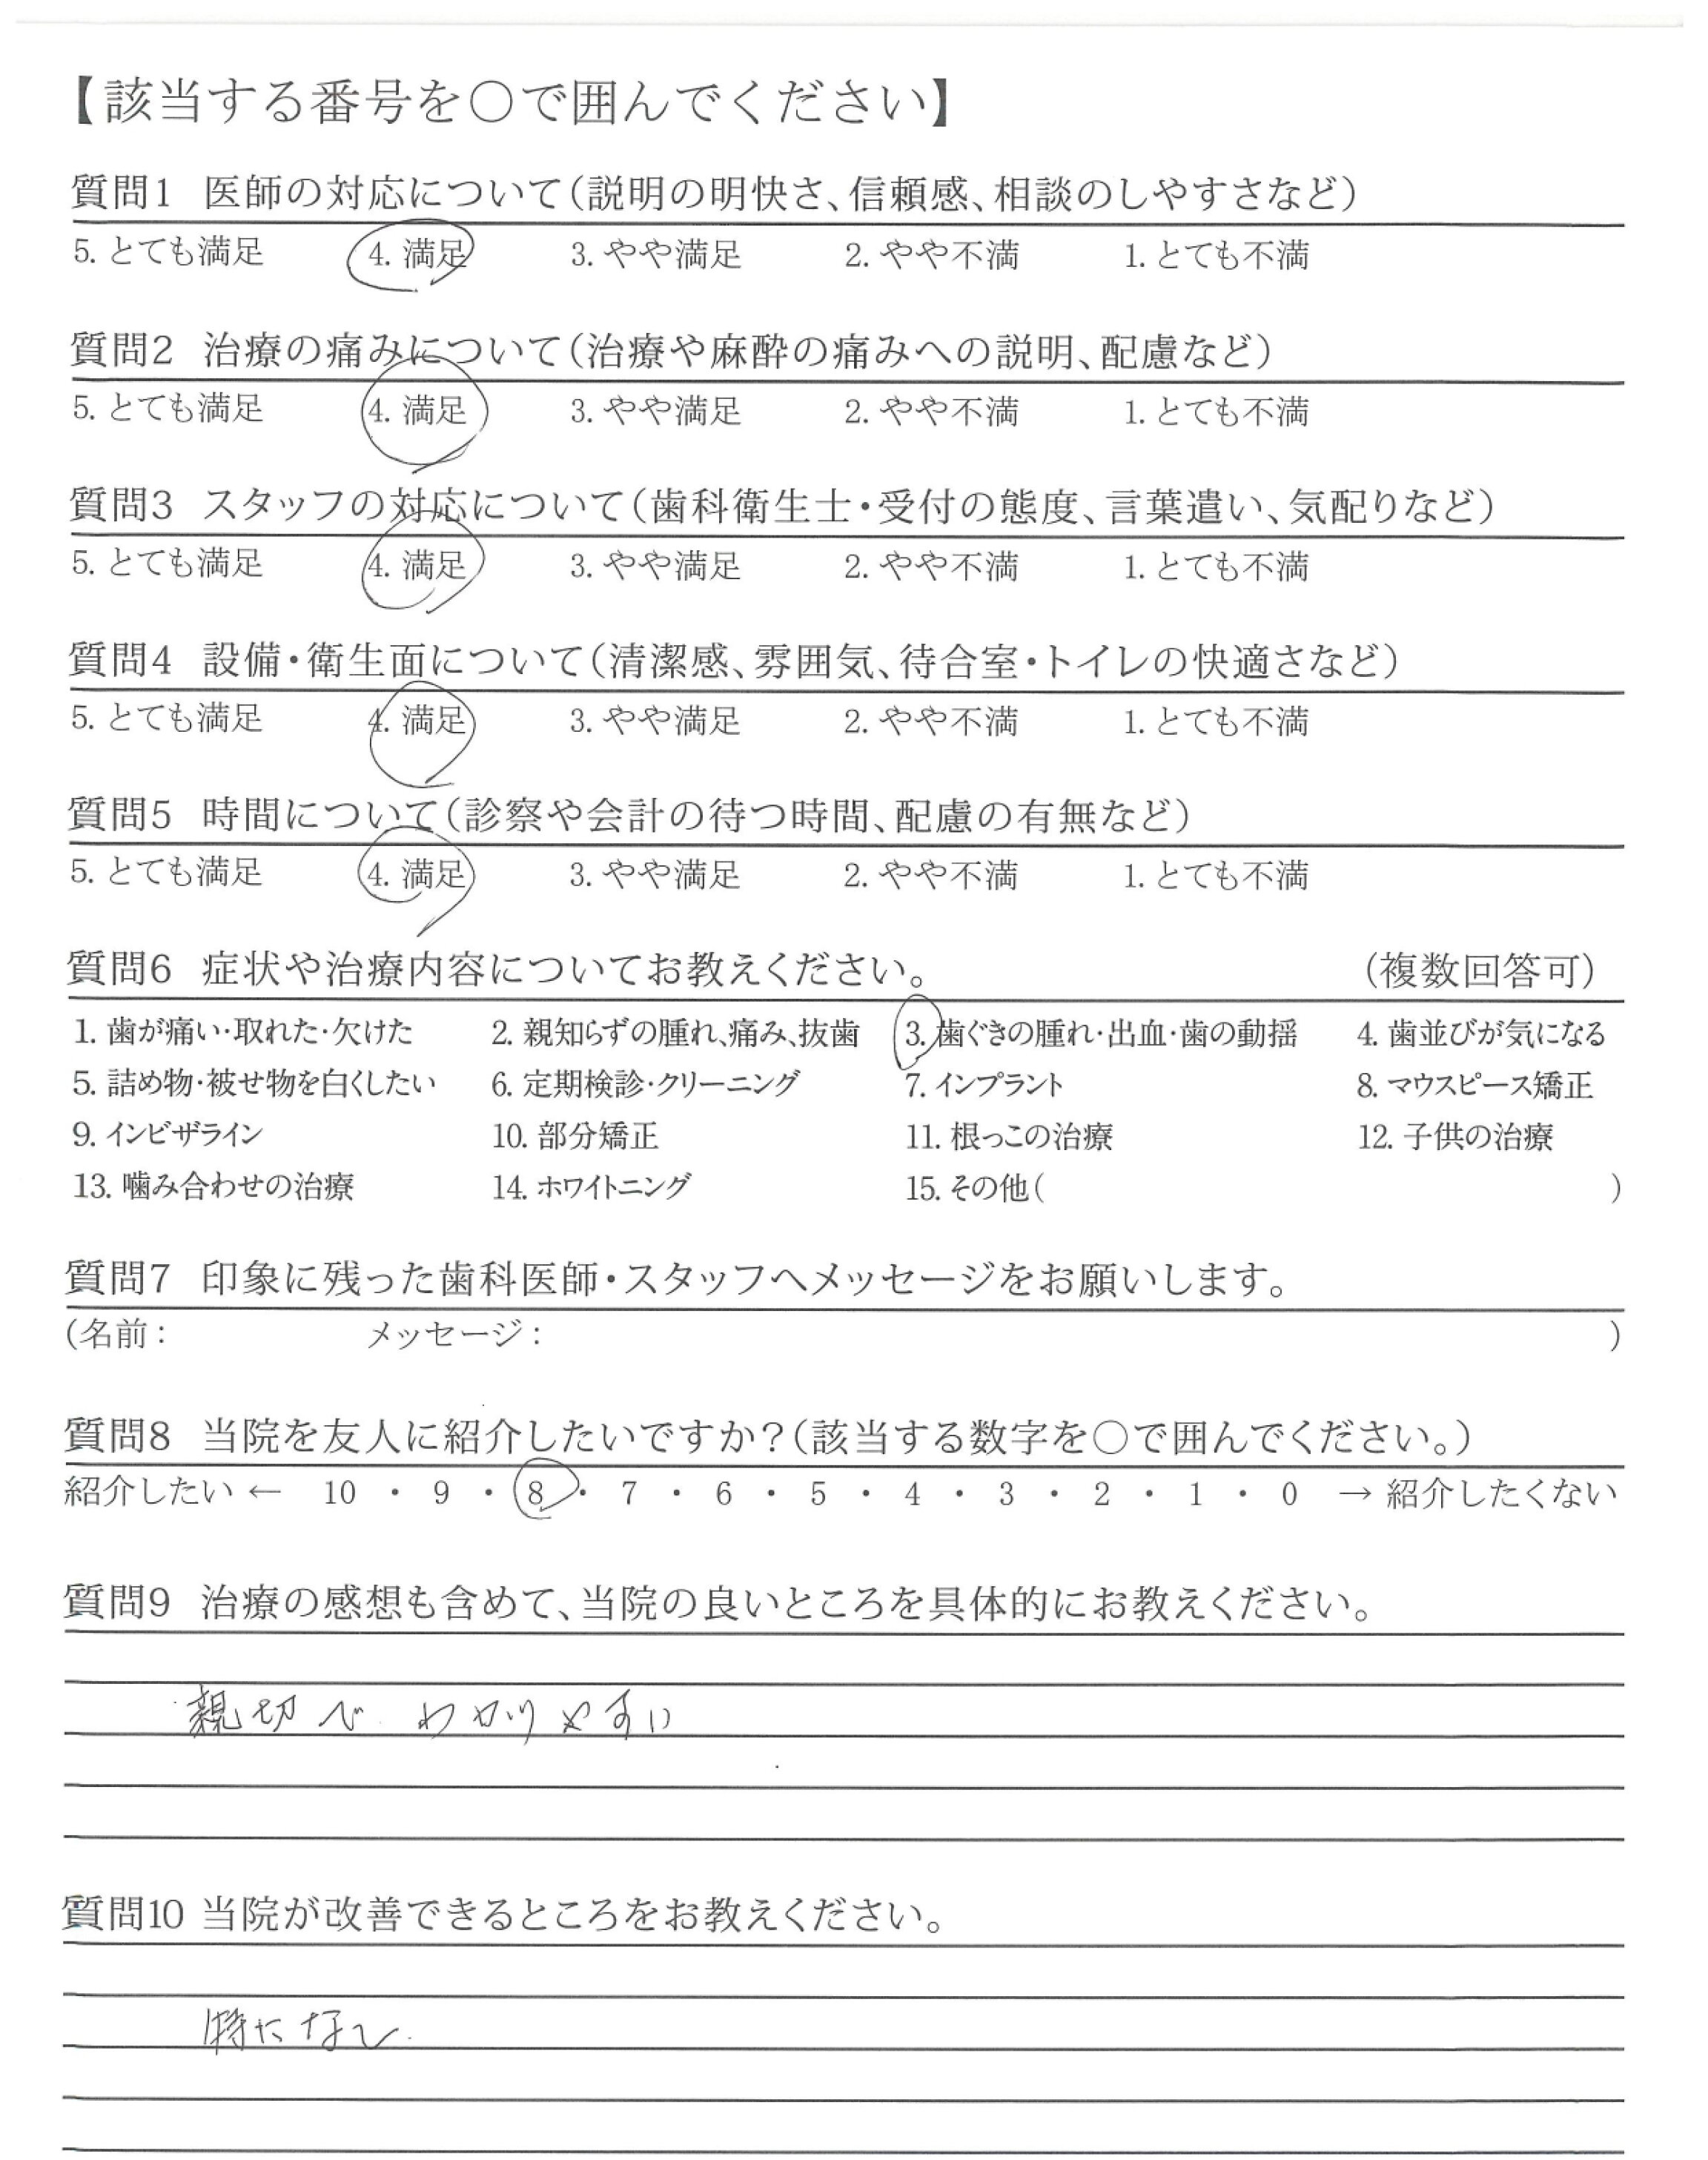 【該当する番号を○で囲んでください】
質問1 医師の対応について(説明の明快さ、信頼感、相談のしやすさなど)
5. とても満足 4. 満足 3. やや満足 2. やや不満 1. とても不満
質問2 治療の痛みについて(治療や麻酔の痛みへの説明、配慮など)
5. とても満足 4. 満足 3. やや満足 2. やや不満 1. とても不満
質問3 スタッフの対応について(歯科衛生士・受付の態度、言葉遣い、気配りなど)
5. とても満足 4. 満足 3. やや満足 2. やや不満 1. とても不満
質問4 設備・衛生面について(清潔感、雰囲気、待合室・トイレの快適さなど)
5. とても満足 4. 満足 3. やや満足 2. やや不満 1. とても不満
質問5 時間について(診察や会計の待つ時間、配慮の有無など)
5. とても満足 4. 満足 3. やや満足 2. やや不満 1. とても不満
質問6 症状や治療内容についてお教えください。 (複数回答可)
1. 歯が痛い・取れた・欠けた 2. 親知らずの腫れ、痛み、抜歯 3. 歯ぐきの腫れ・出血・歯の動揺 4. 歯並びが気になる
5. 詰め物・被せ物を白くしたい 6. 定期検診・クリーニング 7. インプラント 8. マウスピース矯正
9. インビザライン 10. 部分矯正 11. 根っこの治療 12. 子供の治療
13. 噛み合わせの治療 14. ホワイトニング 15. その他( )
質問7 印象に残った歯科医師・スタッフへメッセージをお願いします。
(名前: メッセージ: )
質問8 当院を友人に紹介したいですか?(該当する数字を○で囲んでください。)
紹介したい ← 10 ・ 9 ・ 8 ・ 7 ・ 6 ・ 5 ・ 4 ・ 3 ・ 2 ・ 1 ・ 0 → 紹介したくない
質問9 治療の感想も含めて、当院の良いところを具体的にお教えください。
親切で わかりやすい
質問10 当院が改善できるところをお教えください。
特になし.